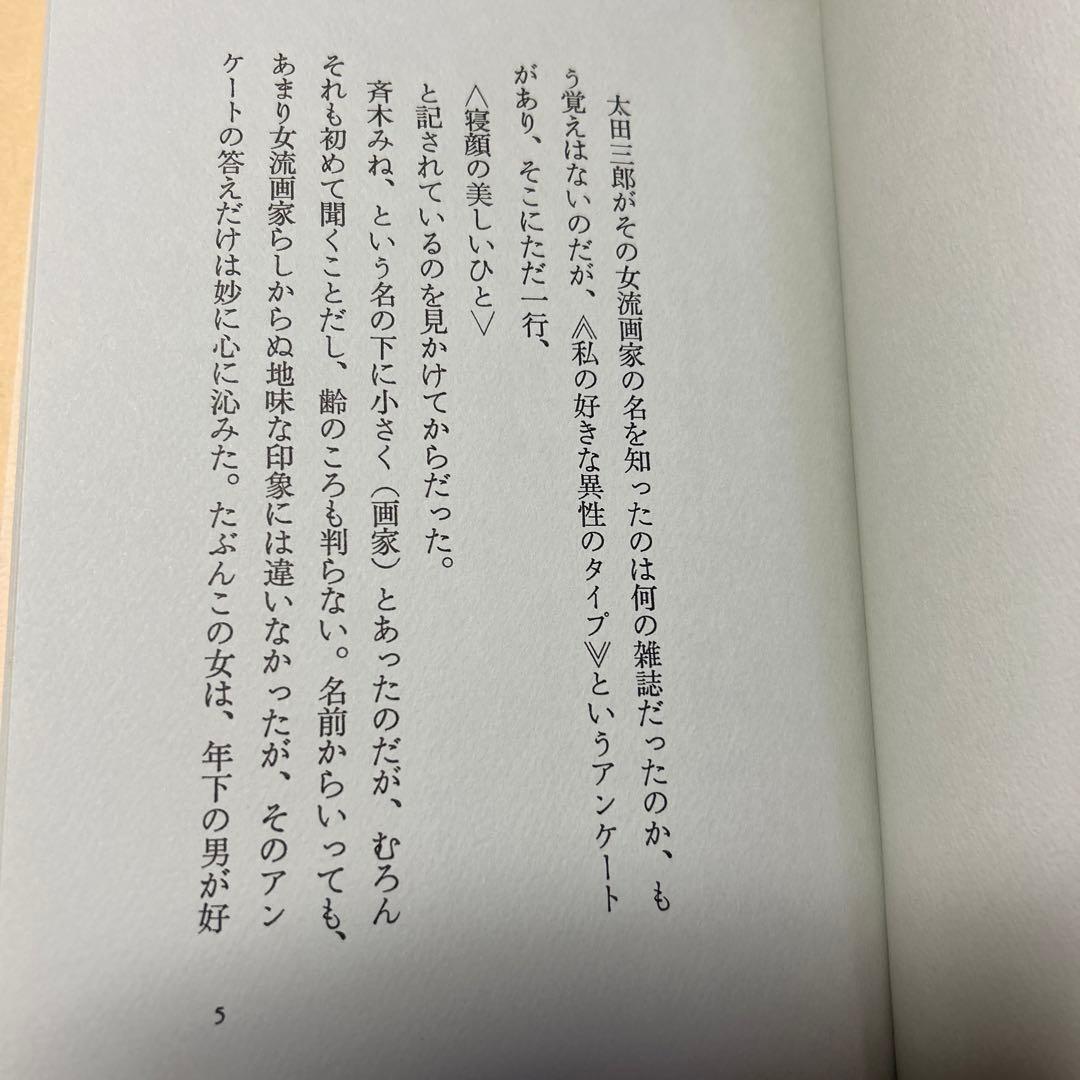 太田三郎がその女流画家の名を知ったのは何の雑誌だったのか、も
う覚えはないのだが、《私の好きな異性のタイプ》というアンケート
があり、そこにただ一行、
〈寝顔の美しいひと〉
と記されているのを見かけてからだった。
斉木みね、という名の下に小さく（画家）とあったのだが、むろん
それも初めて聞くことだし、齢のころも判らない。名前からいっても、
あまり女流画家らしからぬ地味な印象には違いなかったが、そのアン
ケートの答えだけは妙に心に沁みた。たぶんこの女は、年下の男が好
5